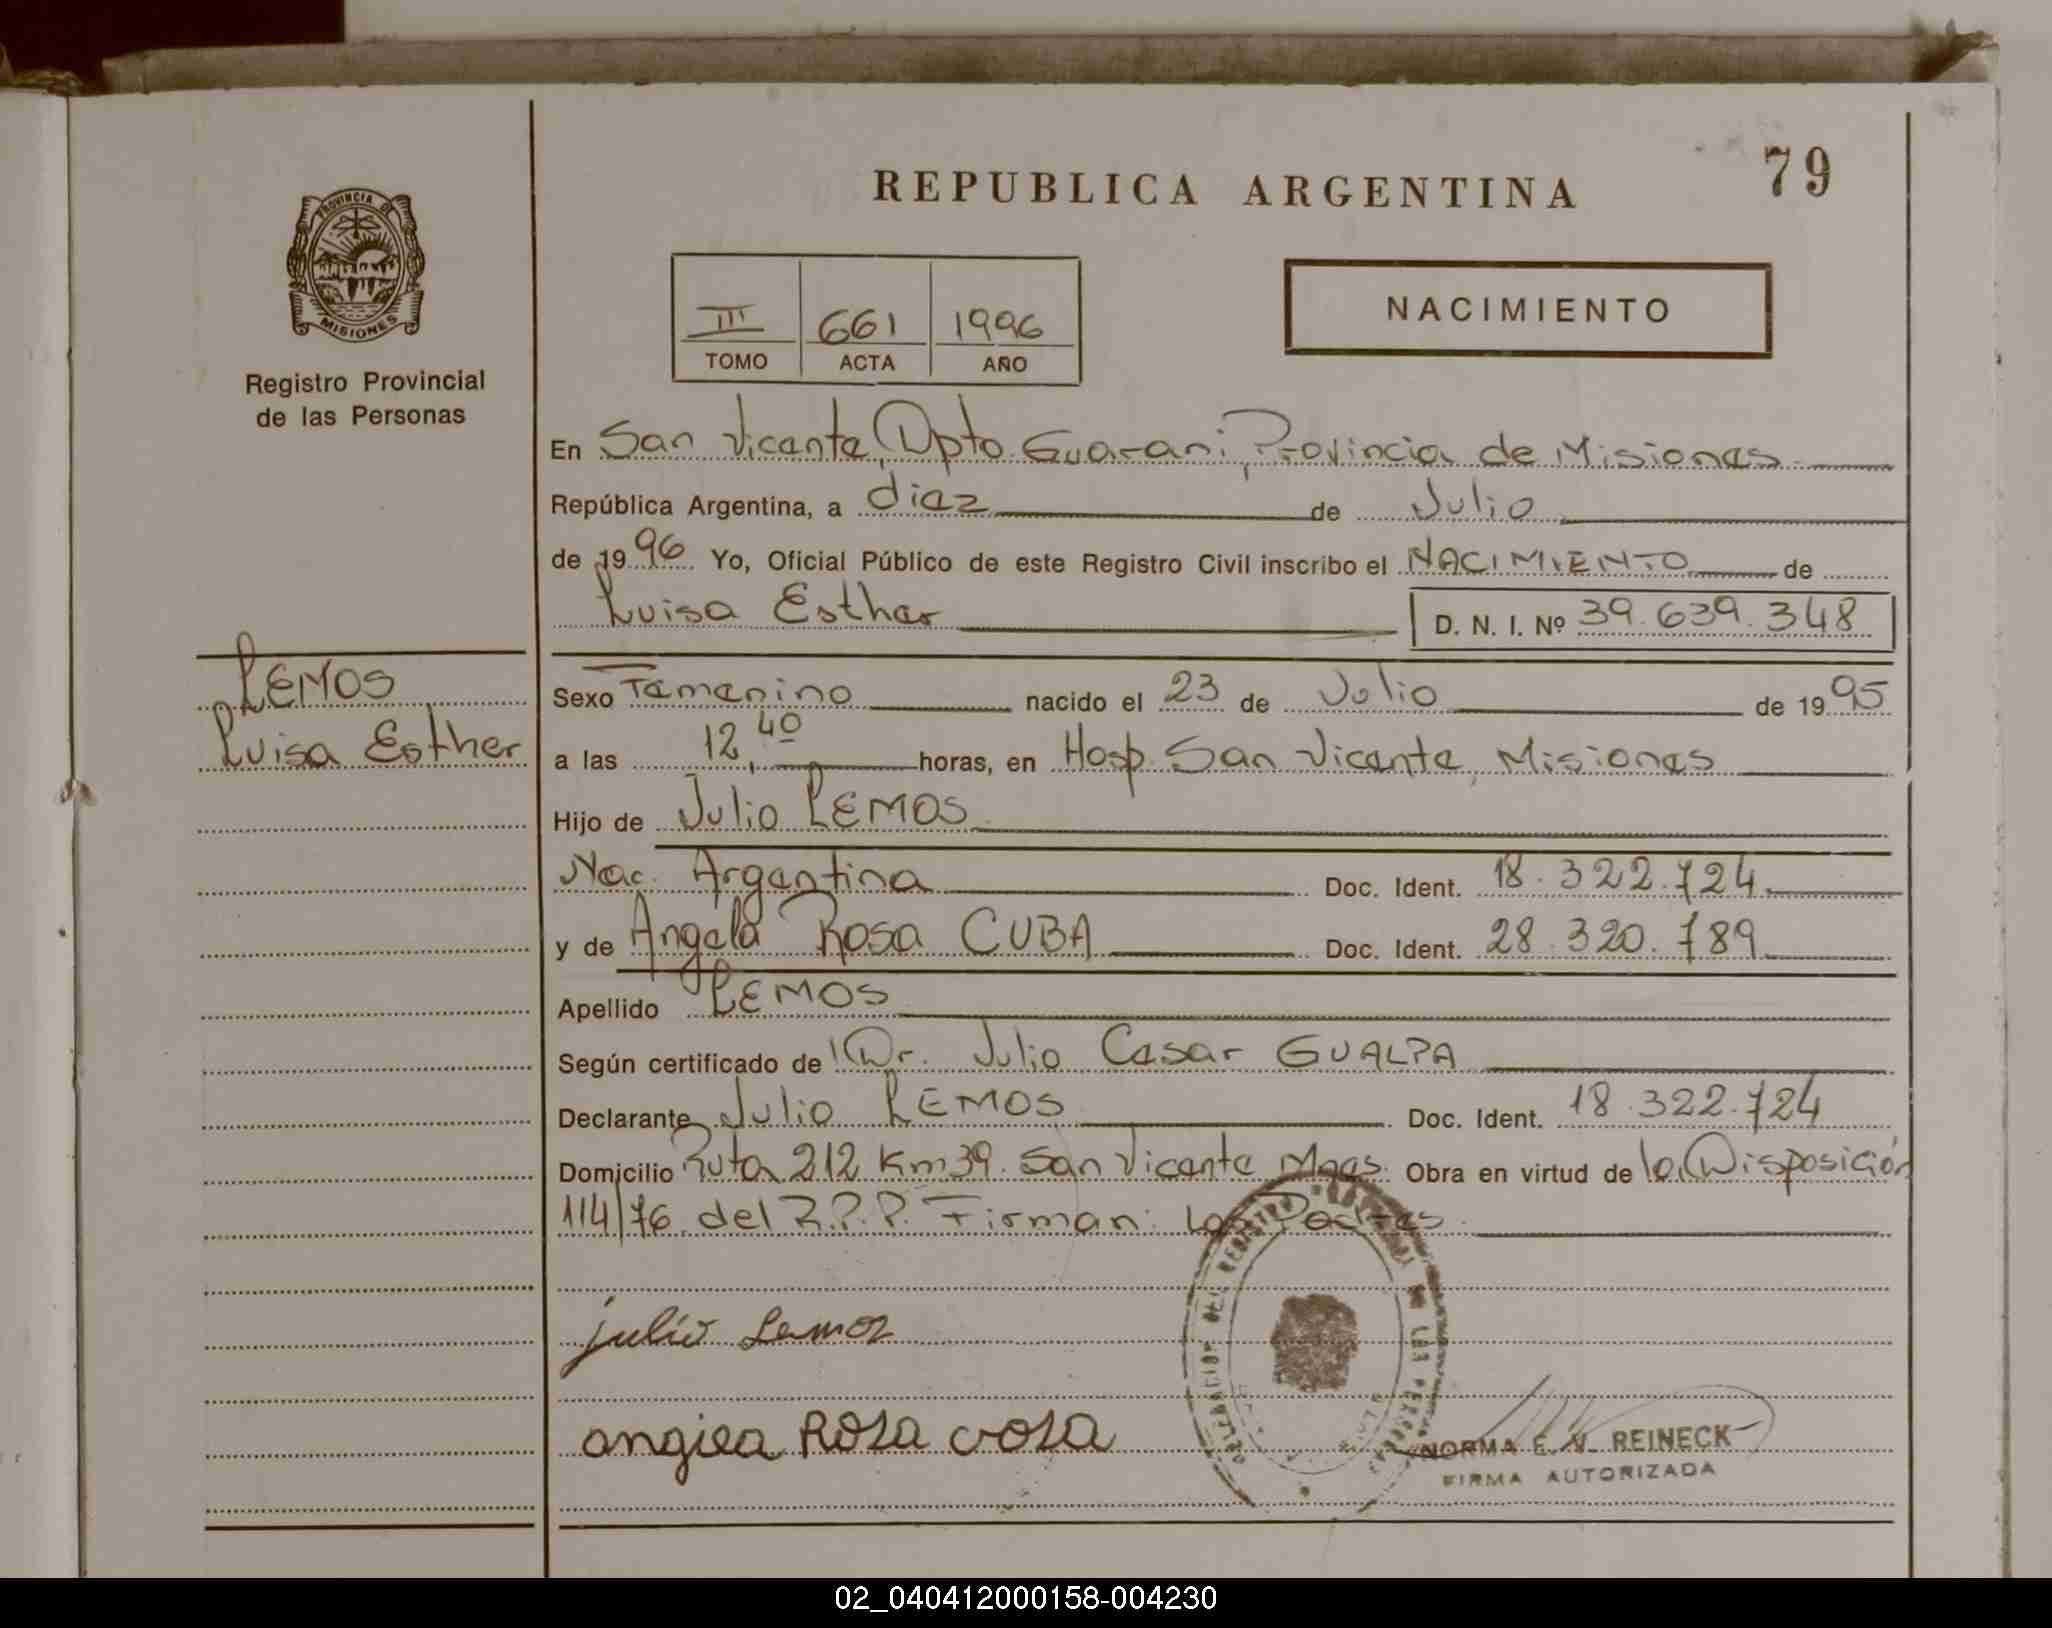 79
REPUBLICA ARGENTINA
PROVINCIA DE
MISIONES
Registro Provincial
de las Personas
III 661 1996
TOMO ACTA AÑO
NACIMIENTO
En San Vicente, Dpto. Guarani, Provincia de Misiones
República Argentina, a diez de Julio
de 1996 Yo, Oficial Público de este Registro Civil inscribo el NACIMIENTO de
Luisa Esther D. N. I. Nº 39.639.348
LEMOS
Luisa Esther
Sexo Femenino nacido el 23 de Julio de 1995
a las 12,40 horas, en Hosp. San Vicente, Misiones
Hijo de Julio LEMOS
Nac. Argentina Doc. Ident. 18.322.724
y de Angela Rosa CUBA Doc. Ident. 28.320.789
Apellido LEMOS
Según certificado de Dr. Julio Cesar GUALPA
Declarante Julio LEMOS Doc. Ident. 18.322.724
Domicilio Ruta 212 Km 39. San Vicente Mnes. Obra en virtud de la Disposición
114/76 del R.P.P. Firman: Los Padres
julio Lemos
angiea Rosa
NORMA E. V. REINECK
FIRMA AUTORIZADA
02_040412000158-004230